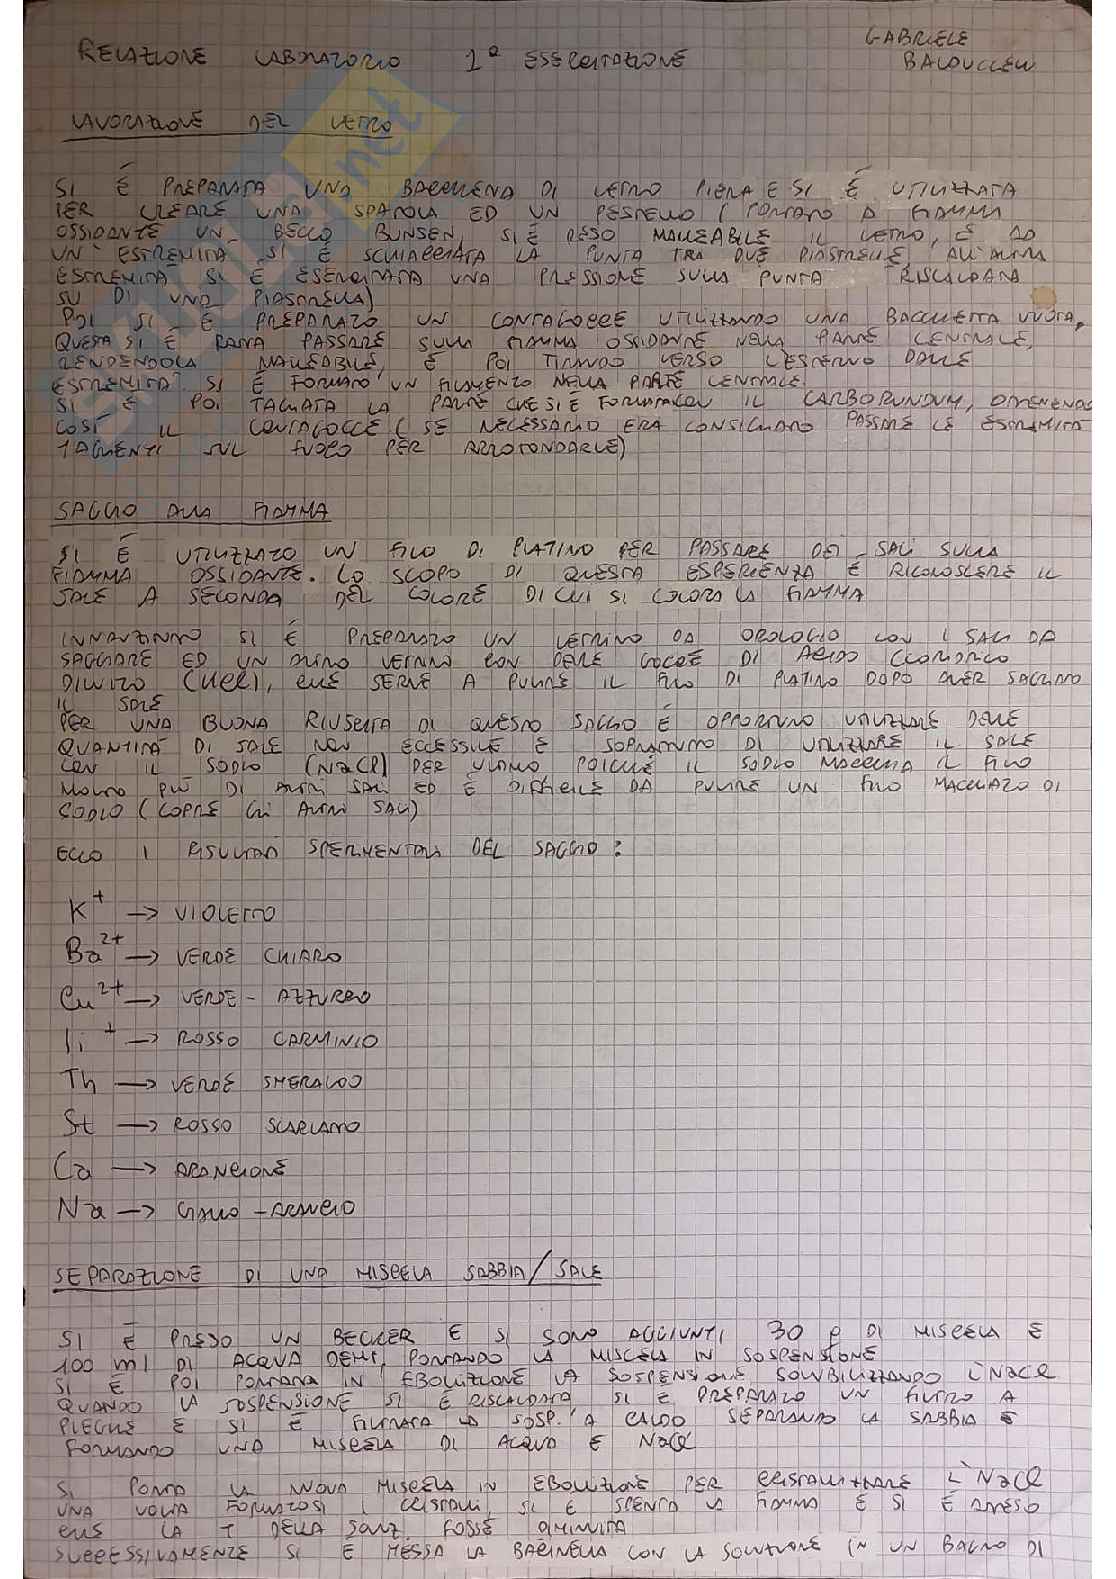 RELAZIONE LABORATORIO 1ª ESERCITAZIONE
GABRIELE
LAVORAZIONE DEL VETRO
SI È PREPARATA UNA BACCHETTA DI VETRO PIENA E SI È UTILIZZATA
PER CREARE UNA SPATOLA ED UN PESTELLO (PORTATO A FIAMMA
OSSIDANTE UN BECCO BUNSEN, SI È RESO MALLEABILE IL VETRO, E AD
UN'ESTREMITÀ SI È SCHIACCIATA LA PUNTA TRA DUE PIASTRELLE, ALL'ALTRA
ESTREMITÀ SI È ESERCITATA UNA PRESSIONE SULLA PUNTA RISCALDATA
SU DI UNA PIASTRELLA)
POI SI È PREPARATO UN CONTAGOCCE UTILIZZANDO UNA BACCHETTA VUOTA,
QUESTA SI È FATTA PASSARE SULLA FIAMMA OSSIDANTE NELLA PARTE CENTRALE,
RENDENDOLA MALLEABILE, E POI TIRANDO VERSO L'ESTERNO DALLE
ESTREMITÀ SI È FORMATO UN FILAMENTO NELLA PARTE CENTRALE.
SI È POI TAGLIATA LA PARTE CHE SI È FORMATA CON IL CARBORUNDUM, OTTENENDO
COSÌ IL CONTAGOCCE (SE NECESSARIO ERA CONSIGLIATO PASSARE LE ESTREMITÀ
TAGLIENTI SUL FUOCO PER ARROTONDARLE)
SAGGIO ALLA FIAMMA
SI È UTILIZZATO UN FILO DI PLATINO PER PASSARE DEI SALI SULLA
FIAMMA OSSIDANTE. LO SCOPO DI QUESTA ESPERIENZA È RICONOSCERE IL
SALE A SECONDA DEL COLORE DI CUI SI COLORA LA FIAMMA
INNANZITUTTO SI È PREPARATO UN VETRINO DA OROLOGIO CON I SALI DA
SAGGIARE ED UN ALTRO VETRINO CON DELLE GOCCE DI ACIDO CLORIDRICO
DILUITO (HCl), CHE SERVE A PULIRE IL FILO DI PLATINO DOPO AVER SAGGIATO
IL SALE
PER UNA BUONA RIUSCITA DI QUESTO SAGGIO È OPPORTUNO UTILIZZARE DELLE
QUANTITÀ DI SALE NON ECCESSIVE E SOPRATTUTTO DI UTILIZZARE IL SALE
CON IL SODIO (NaCl) PER ULTIMO POICHÉ IL SODIO MACCHIA IL FILO
MOLTO PIÙ DI ALTRI SALI ED È DIFFICILE DA PULIRE UN FILO MACCHIATO DI
SODIO (COPRE GLI ALTRI SALI)
ECCO I RISULTATI SPERIMENTALI DEL SAGGIO:
K⁺ → VIOLETTO
Ba²⁺ → VERDE CHIARO
Cu²⁺ → VERDE-AZZURRO
Li⁺ → ROSSO CARMINIO
Th → VERDE SMERALDO
St → ROSSO SCARLATTO
Ca → ARANCIONE
Na → GIALLO-ARANCIO
SEPARAZIONE DI UNA MISCELA SABBIA/SALE
SI È PRESO UN BECKER E SI SONO AGGIUNTI 30 g DI MISCELA E
100 ml DI ACQUA DEMI, PORTANDO LA MISCELA IN SOSPENSIONE
SI È POI PORTATA IN EBOLLIZIONE LA SOSPENSIONE SOLUBILIZZANDO L'NaCl
QUANDO LA SOSPENSIONE SI È RISCALDATA SI È PREPARATO UN FILTRO A
PIEGHE E SI È FILTRATA LA SOSP. A CALDO SEPARANDO LA SABBIA E
FORMANDO UNA MISCELA DI ACQUA E NaCl
SI PORTA LA NUOVA MISCELA IN EBOLLIZIONE PER CRISTALLIZZARE L'NaCl
UNA VOLTA FORMATOSI I CRISTALLI, SI È SPENTA LA FIAMMA E SI È ATTESO
CHE LA T DELLA SOLUZ. FOSSE DIMINUITA
SUCCESSIVAMENTE SI È MESSA LA BACINELLA CON LA SOLUZIONE IN UN BAGNO DI